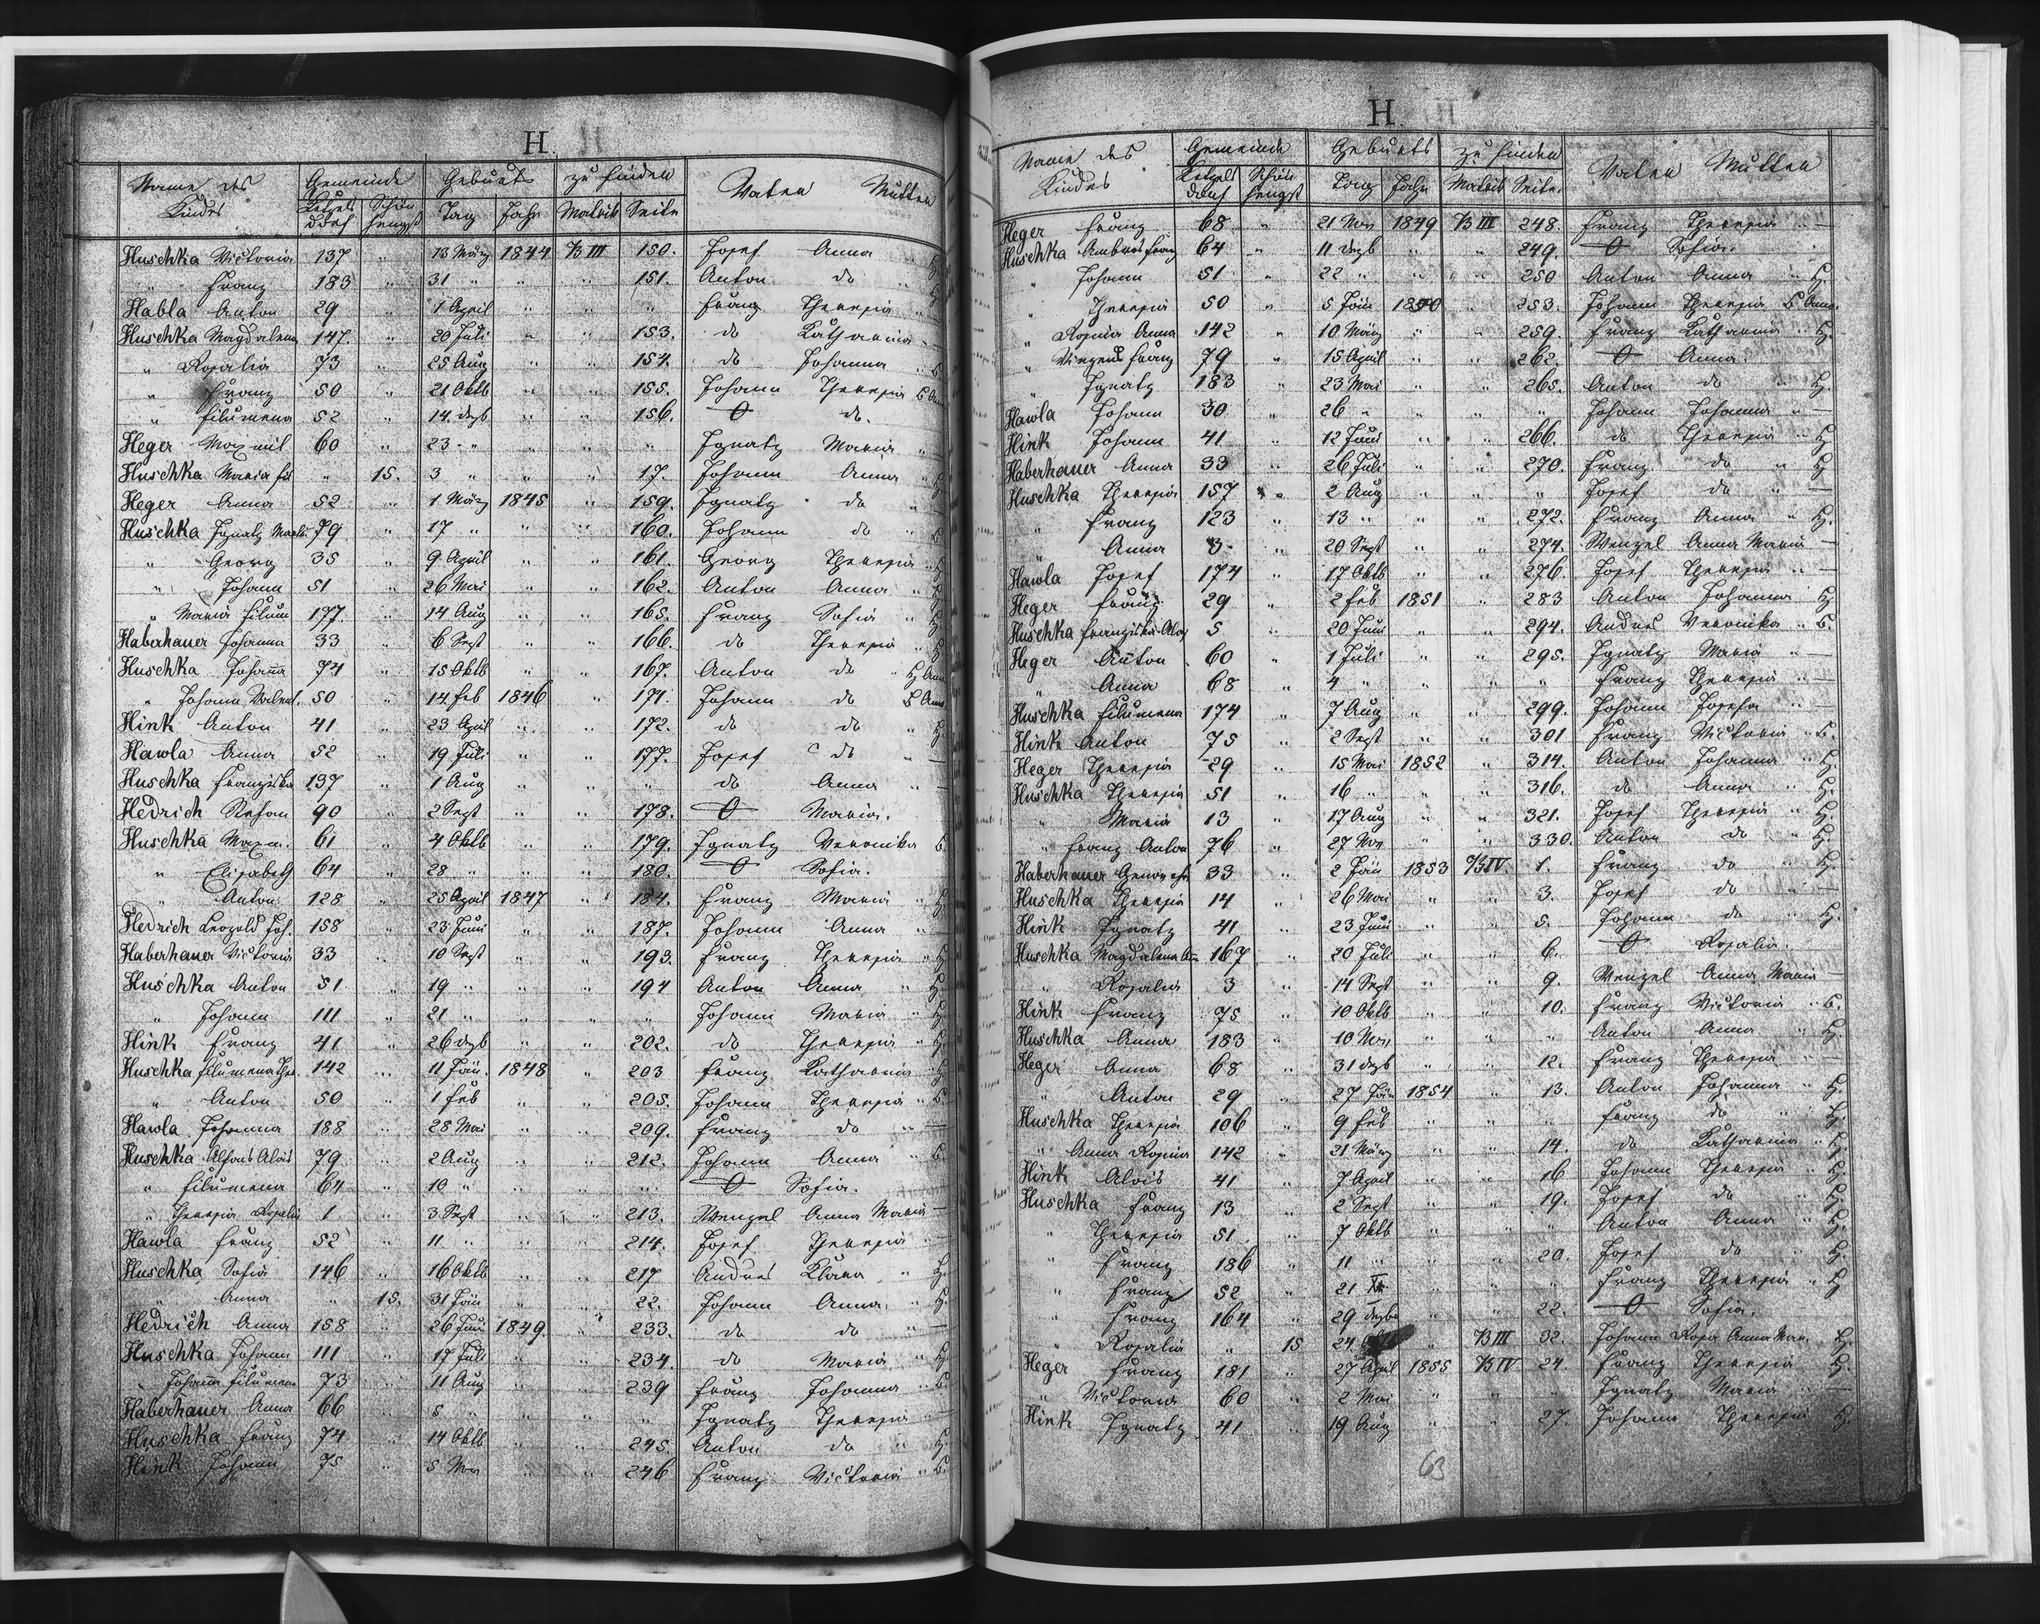 H.
Name des Kindes Gemeinde Ketzelsdorf Schönhengst Geburts Tag Jahr zu finden Matrik Seite Vater Mutter
Huschka Victoria 137 " 13 März 1844 B III 150. Josef Anna
" Franz 183 " 31 " " " 151. Anton do
Habla Anton 29 " 1 April " " " Franz Theresia
Huschka Magdalena 147. " 20 Juli " " 153. do Katharina
" Rosalia 73 " 25 Aug " " 154. do Johanna
" Franz 50 " 21 Oktb " " 155. Johann Theresia
" Filumena 52 " 14. dezb " " 156. O do.
Heger Maxmil 60 " 23. " " " " Ignatz Maria
Huschka Maria " 15. 3 " " " 17. Johann Anna
Heger Anna 52 " 1 März 1845 " 159. Ignatz do
Huschka Ignatz 79 " 17 " " " 160. Johann do
" Georg 35 " 9 April " " 161. Georg Theresia
" Johann 51 " 26 Mai " " 162. Anton Anna
" Maria Filum 177. " 14 Aug " " 165. Franz Sofia
Haberhauer Johanna 33 " 6 Sept " " 166. do Theresia
Huschka Johanna 74 " 15 Oktb " " 167. Anton do
" Johann Valent. 50 " 14 Feb 1846 " 171. Johann do
Hink Anton 41 " 23 April " " 172. do do
Hawla Anna 52 " 19 Juli " " 177. Josef do
Huschka Franziska 137 " 1 Aug " " " do Anna
Hedrich Stefan 90 " 2 Sept " " 178. O Maria.
Huschka Maxm. 61 " 4 Oktb " " 179. Ignatz Veronika
" Elisabeth 64 " 28 " " " 180. O Sofia.
" Anton 128 " 25 April 1847 " 184. Franz Maria
Hedrich Leopold Joh. 158 " 23 Juni " " 187. Johann Anna
Haberhauer Victoria 33 " 10 Sept " " 193. Franz Theresia
Huschka Anton 51 " 19 " " " 194 Anton Anna
" Johann 111 " 21 " " " " Johann Maria
Hink Franz 41 " 26 dezb " " 202. do Theresia
Huschka Filumena Ther. 142 " 11 Jän. 1848 " 203 Franz Katharina
" Anton 50 " 1 Feb " " 205. Johann Theresia
Hawla Johanna 188 " 28 Mai " " 209. Franz do
Huschka Alfons Alois 79 " 2 Aug " " 212. Johann Anna
" Filumena 64 " 10 " " " " O Sofia.
" Theresia Rosalia 1 " 3 Sept " " 213. Wenzel Anna Maria
Hawla Franz 52 " 11 " " " 214. Josef Theresia
Huschka Sofia 146 " 16 Oktb " " 217 Andres Klara
" Anna " 15. 31 Jän " " 22. Johann Anna.
Hedrich Anna 158 " 26 Juni 1849. " 233. do do
Huschka Johann 111 " 17 Juli " " 234. do Maria
" Johanna Filumena 73 " 11 Aug " " 239 Franz Johanna
Haberhauer Anna 66 " 5 " " " " Ignatz Theresia
Huschka Franz 74 " 14 Oktb " " 245. Anton do
Hink Johann 75 " 5 Nov " " 246 Franz Victoria
H.
Name des Kindes Gemeinde Ketzelsdorf Schönhengst Geburts Tag Jahr zu finden Matrik Seite Vater Mutter
Heger Franz 68 " 21 Nov 1849 B III 248. Franz Theresia " —
Huschka Ambros Franz 64 " 11 dezb " " 249. O Sofia.
" Johann 51 " 22 " " " 250 Anton Anna " H.
" Theresia 50 " 5 Jän 1850 " 253. Johann Theresia
" Rosina Anna 142 " 10 März " " 259. Franz Katharina " H.
" Vinzenz Franz 79 " 15 April " " 262. O Anna.
" Ignatz 183 " 23 Mai " " 265. Anton do " H.
Hawla Johann 30 " 26 " " " " Johann Johanna " —
Hink Johann 41 " 12 Juni " " 266. do Theresia " H.
Haberhauer Anna 33 " 26 Juli " " 270. Franz do " H
Huschka Theresia 157 " 2 Aug " " " Josef do " —
" Franz 123 " 13 " " " 272. Franz Anna " H.
" Anna 3 " 20 Sept " " 274. Wenzel Anna Maria —
Hawla Josef 174 " 17 Oktb " " 276. Josef Theresia " —
Heger Franz 29 " 2 Feb 1851 " 283 Anton Johanna " H.
Huschka Franziska 5 " 20 Juni " " 294. Andres Veronika " B.
Heger Anton 60 " 1 Juli " " 295. Ignatz Maria " —
" Anna 68 " 4 " " " " Franz Theresia " —
Huschka Filumena 174 " 7 Aug " " 299. Johann Josefa " —
Hink Anton 75 " 2 Sept " " 301 Franz Victoria " B.
Heger Theresia 29 " 15 Mai 1852 " 314. Anton Johanna " H.
Huschka Theresia 51 " 16 " " " 316. do Anna " H.
" Maria 13 " 17 Aug " " 321. Josef Theresia " H.
" Franz Anton 76 " 27 Nov " " 330. Anton do " H.
Haberhauer Genovefa 33 " 2 Jän 1853 B IV. 1. Franz do " H.
Huschka Theresia 14 " 26 Mai " " 3. Josef do " —
Hink Ignatz 41 " 23 Juni " " 5. Johann do " H.
Huschka Magdalena 167 " 20 Juli " " 6. O Rosalia.
" Rosalia 3 " 14 Sept " " 9. Wenzel Anna Maria —
Hink Franz 75 " 10 Oktb " " 10. Franz Victoria " B.
Huschka Anna 183 " 10 Nov " " " Anton Anna " H.
Heger Anna 68 " 31 dezb " " 12. Franz Theresia " —
" Anton 29 " 27 Jän 1854 " 13. Anton Johanna " H.
Huschka Theresia 106 " 9 Feb " " " Franz do " H.
" Anna Rosina 142 " 21 März " " 14. do Katharina " H.
Hink Alois 41 " 7 April " " 16 Johann Theresia " H.
Huschka Franz 13 " 2 Sept " " 19. Josef do " H.
" Theresia 51 " 7 Oktb " " " Anton Anna " H.
" Franz 186 " 11 " " " 20. Josef do " H.
" Franz 52 " 21 " " " Franz Theresia " H
" Franz 164 " 29 dezb " " 22. O Sofia.
" Rosalia " 15 24 B III 32. Johann Rosa Anna Mar. H.
Heger Franz 181 " 27 April 1855 B IV 24. Franz Theresia H.
" Victoria 60 " 2 Mai " " " Ignatz Maria —
Hink Ignatz 41 " 19 Aug " " 27. Johann Theresia H.
63